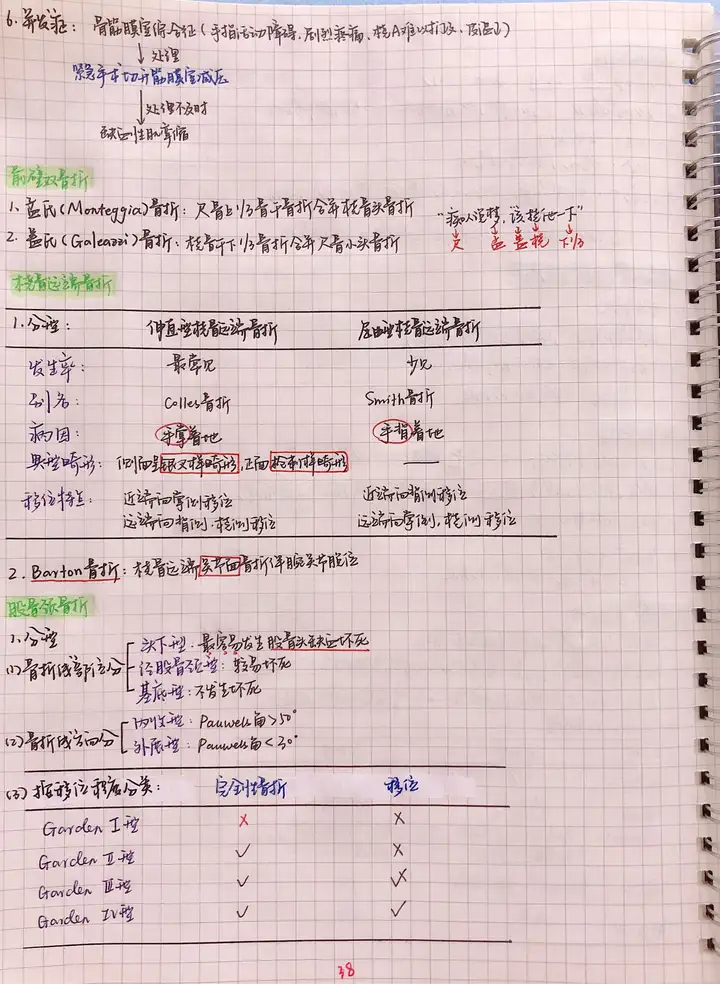 6. 并发症: 骨筋膜室综合征(手指活动障碍、剧烈疼痛、桡A难以扪及、
↓处理
紧急手术切开筋膜室减压
↓处理不及时
缺血性肌挛缩
前臂双骨折
1. 孟氏(Monteggia)骨折: 尺骨上1/3骨干骨折合并桡骨头骨折
2. 盖氏(Galeazzi)骨折: 桡骨干下1/3骨折合并尺骨小头骨折
"痴人说梦, 该挠他一下"
尺 孟 盖 桡 下1/3
桡骨远端骨折
1. 分型: 伸直型桡骨远端骨折 屈曲型桡骨远端骨折
发生率: 最常见 少见
别名: Colles骨折 Smith骨折
病因: 手掌着地 手背着地
典型畸形: 侧面呈银叉样畸形, 正面枪刺样畸形 —
移位特点: 近端向掌侧移位 近端向背侧移位
远端向背侧、桡侧移位 远端向掌侧、桡侧移位
2. Barton骨折: 桡骨远端关节面骨折伴腕关节脱位
股骨颈骨折
1. 分型
(1) 骨折线部位分
头下型: 最容易发生股骨头缺血坏死
经股骨颈型: 较易坏死
基底型: 不发生坏死
(2) 骨折线方向分
内收型: Pauwels角>50°
外展型: Pauwels角<30°
(3) 按移位程度分类: 完全性骨折 移位
Garden I型 × ×
Garden II型 ✓ ×
Garden III型 ✓ ✓×
Garden IV型 ✓ ✓
38